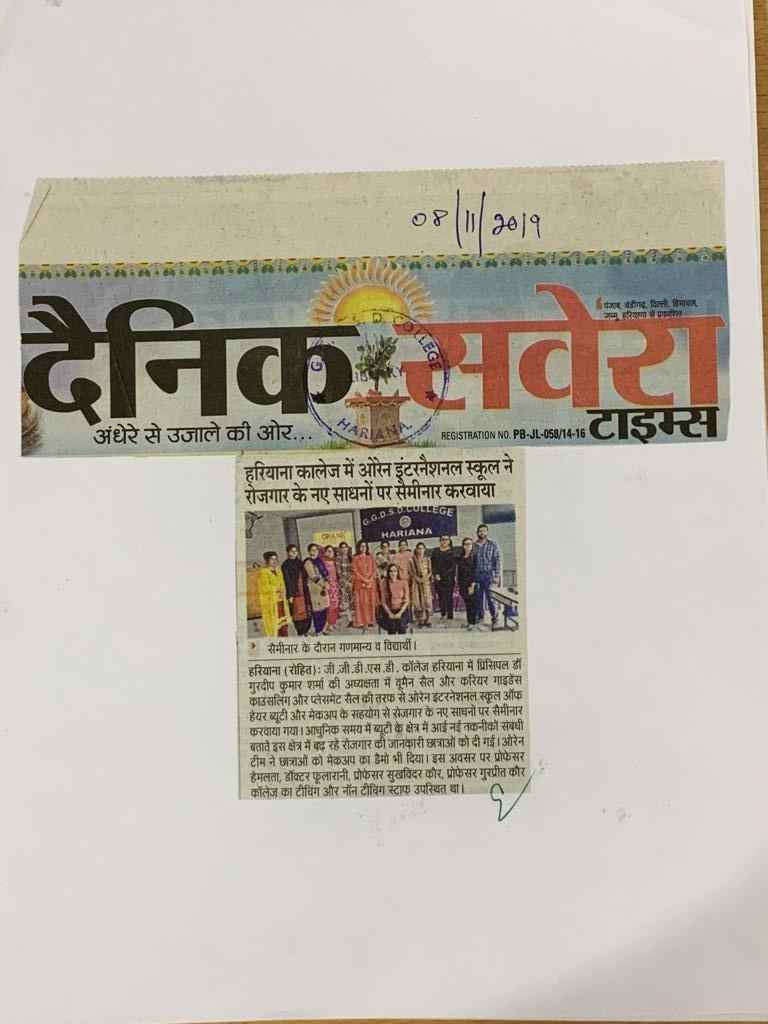 08/11/2019
पंजाब, चंडीगढ़, दिल्ली, हिमाचल,
जम्मू, हरियाणा से प्रकाशित
दैनिक सवेरा
टाइम्स
अंधेरे से उजाले की ओर...
REGISTRATION NO. PB-JL-058/14-16
G.G.D.S.D. COLLEGE
LIBRARY
HARIANA
हरियाना कालेज में ओरेन इंटरनैशनल स्कूल ने
रोजगार के नए साधनों पर सैमीनार करवाया
G.G.D.S.D.COLLEGE
HARIANA
सैमीनार के दौरान गणमान्य व विद्यार्थी।
हरियाना (रोहित): जी.जी.डी.एस.डी. कॉलेज हरियाना में प्रिंसिपल डॉ
गुरदीप कुमार शर्मा की अध्यक्षता में वूमैन सैल और करियर गाइडेंस
काउंसलिंग और प्लेसमेंट सैल की तरफ से ओरेन इंटरनेशनल स्कूल ऑफ
हेयर ब्यूटी और मेकअप के सहयोग से रोजगार के नए साधनों पर सैमीनार
करवाया गया। आधुनिक समय में ब्यूटी के क्षेत्र में आई नई तकनीकों संबंधी
बताते इस क्षेत्र में बढ़ रहे रोजगार की जानकारी छात्राओं को दी गई। ओरेन
टीम ने छात्राओं को मेकअप का डैमो भी दिया। इस अवसर पर प्रोफेसर
हेमलता, डॉक्टर फूलारानी, प्रोफेसर सुखविंदर कौर, प्रोफेसर गुरप्रीत कौर
कॉलेज का टीचिंग और नॉन टीचिंग स्टाफ उपस्थित था।